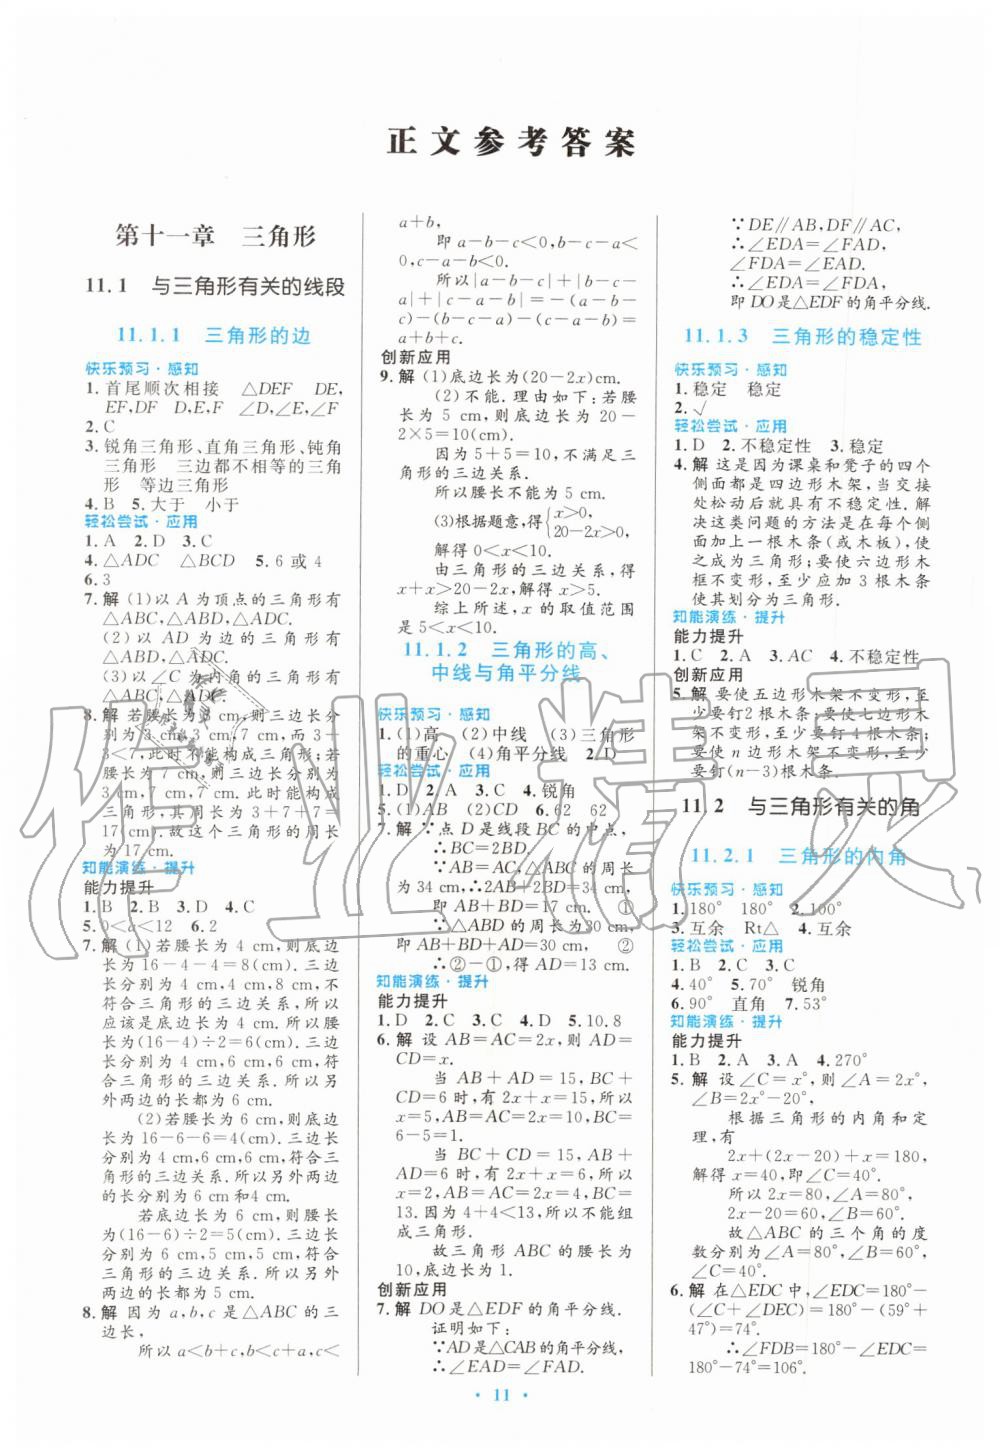 正文参考答案
第十一章　三角形
11.1　与三角形有关的线段
11.1.1　三角形的边
快乐预习·感知
1. 首尾顺次相接　△DEF　DE,
EF,DF　D,E,F　∠D,∠E,∠F
2. C
3. 锐角三角形、直角三角形、钝角
三角形　三边都不相等的三角
形　等边三角形
4. B　5. 大于　小于
轻松尝试·应用
1. A　2. D　3. C
4. △ADC　△BCD　5. 6 或 4
6. 3
7. 解　(1)以 A 为顶点的三角形有
△ABC,△ABD,△ADC.
(2)以 AD 为边的三角形有
△ABD,△ADC.
(3)以∠C 为内角的三角形有
△ABC,△ADC.
8. 解　若腰长为 3 cm,则三边长分
别为 3 cm,3 cm,7 cm,而 3+
3<7,此时不能构成三角形;若
腰长为 7 cm,则三边长分别为
3 cm,7 cm,7 cm,此时能构成
三角形,其周长为 3+7+7=
17(cm).故这个三角形的周长
为 17 cm.
知能演练·提升
能力提升
1. B　2. B　3. D　4. C
5. 0<a<12　6. 2
7. 解　(1)若腰长为 4 cm,则底边
长为 16-4-4=8(cm).三边
长分别为 4 cm,4 cm,8 cm,不
符合三角形的三边关系,所以
应该是底边长为 4 cm.所以腰
长为(16-4)÷2=6(cm).三边
长分别为 4 cm,6 cm,6 cm,符
合三角形的三边关系.所以另
外两边的长都为 6 cm.
(2)若腰长为 6 cm,则底边
长为 16-6-6=4(cm).三边长
分别为 6 cm,6 cm,4 cm,符合
三角形的三边关系.所以另外两边
的长分别为 6 cm和4 cm.
若底边长为 6 cm,则腰长为
(16-6)÷2=5(cm).三边长
分别为 6 cm,5 cm,5 cm,符合
三角形的三边关系.所以另外
两边的长都为 5 cm.
8. 解　因为 a,b,c 是△ABC 的三
边长,
所以 a<b+c,b<c+a,c<
a+b,
即 a-b-c<0,b-c-a<
0,c-a-b<0.
所以|a-b-c|+|b-c-
a|+|c-a-b|=-(a-b-
c)-(b-c-a)-(c-a-b)=
a+b+c.
创新应用
9. 解　(1)底边长为(20-2x)cm.
(2)不能.理由如下:若腰
长为 5 cm,则底边长为 20-
2×5=10(cm).
因为5+5=10,不满足三
角形的三边关系.
所以腰长不能为 5 cm.
(3)根据题意,得{x>0,
20-2x>0,
解得 0<x<10.
由三角形的三边关系,得
x+x>20-2x,解得x>5.
综上所述,x 的取值范围
是 5<x<10.
11.1.2　三角形的高、
中线与角平分线
快乐预习·感知
1. (1)高　(2)中线　(3)三角形
的重心　(4)角平分线　2. D
轻松尝试·应用
1. D　2. A　3. C　4. 锐角
5. (1)AB　(2)CD　6. 62　62
7. 解　∵点 D 是线段 BC 的中点,
∴BC=2BD.
∵AB=AC,△ABC 的周长
为 34 cm,∴2AB+2BD=34,
即 AB+BD=17 cm.　①
∵△ABD 的周长为30 cm,
即 AB+BD+AD=30 cm,　②
∴②-①,得 AD=13 cm.
知能演练·提升
能力提升
1. D　2. C　3. C　4. D　5. 10.8
6. 解　设 AB=AC=2x,则 AD=
CD=x.
当 AB+AD=15,BC+
CD=6 时,有 2x+x=15,所以
x=5,AB=AC=2x=10,BC=
6-5=1.
当 BC+CD=15,AB+
AD=6 时,有 2x+x=6,所以
x=2,AB=AC=2x=4,BC=
13.因为 4+4<13,所以不能组
成三角形.
故三角形 ABC 的腰长为
10,底边长为 1.
创新应用
7. 解　DO是△EDF的角平分线.
证明如下:
∵AD是△CAB的角平分线,
∴∠EAD=∠FAD.
∵DE∥AB,DF∥AC,
∴∠EDA=∠FAD,
∠FDA=∠EAD.
∴∠EDA=∠FDA,
即 DO 是△EDF 的角平分线.
11.1.3　三角形的稳定性
快乐预习·感知
1. 稳定　稳定
2. √
轻松尝试·应用
1. D　2. 不稳定性　3. 稳定
4. 解　这是因为课桌和凳子的四个
侧面都是四边形木架,当交接
处松动后就具有不稳定性.解
决这类问题的方法是在每个侧
面加上一根木条(或木板),使
之成为三角形;要使六边形木
框不变形,至少应加 3 根木条,
使其划分为三角形.
知能演练·提升
能力提升
1. C　2. A　3. AC　4. 不稳定性
创新应用
5. 解　要使五边形木架不变形,至
少要钉2根木条;要使七边形木
架不变形,至少要钉4根木条;
要使 n 边形木架不变形,至少
要钉(n-3)根木条.
11.2　与三角形有关的角
11.2.1　三角形的内角
快乐预习·感知
1. 180°　180°　2. 100°
3. 互余　Rt△　4. 互余
轻松尝试·应用
1. B　2. C　3. C
4. 40°　5. 70°　锐角
6. 90°　直角　7. 53°
知能演练·提升
能力提升
1. B　2. A　3. A　4. 270°
5. 解　设∠C=x°,则∠A=2x°,
∠B=2x°-20°,
根据三角形的内角和定
理,有
2x+(2x-20)+x=180,
解得 x=40,即∠C=40°.
所以 2x=80,∠A=80°,
2x-20=60,∠B=60°.
故△ABC 的三个角的度
数分别为∠A=80°,∠B=60°,
∠C=40°.
6. 解　在△EDC 中,∠EDC=180°-
(∠C+∠DEC)=180°-(59°+
47°)=74°.
∴∠FDB=∠EDC=180°
-180°-74°=106°.
· 11 ·
作业精灵